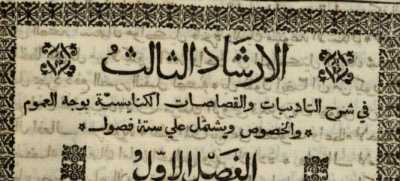 الارشاد الثالث
في شرح التاديبات والقصاصات الكنايسيّة بوجه العموم
* والخصوص ويشتمل علي ستة فصول *
الفصل الاوّل